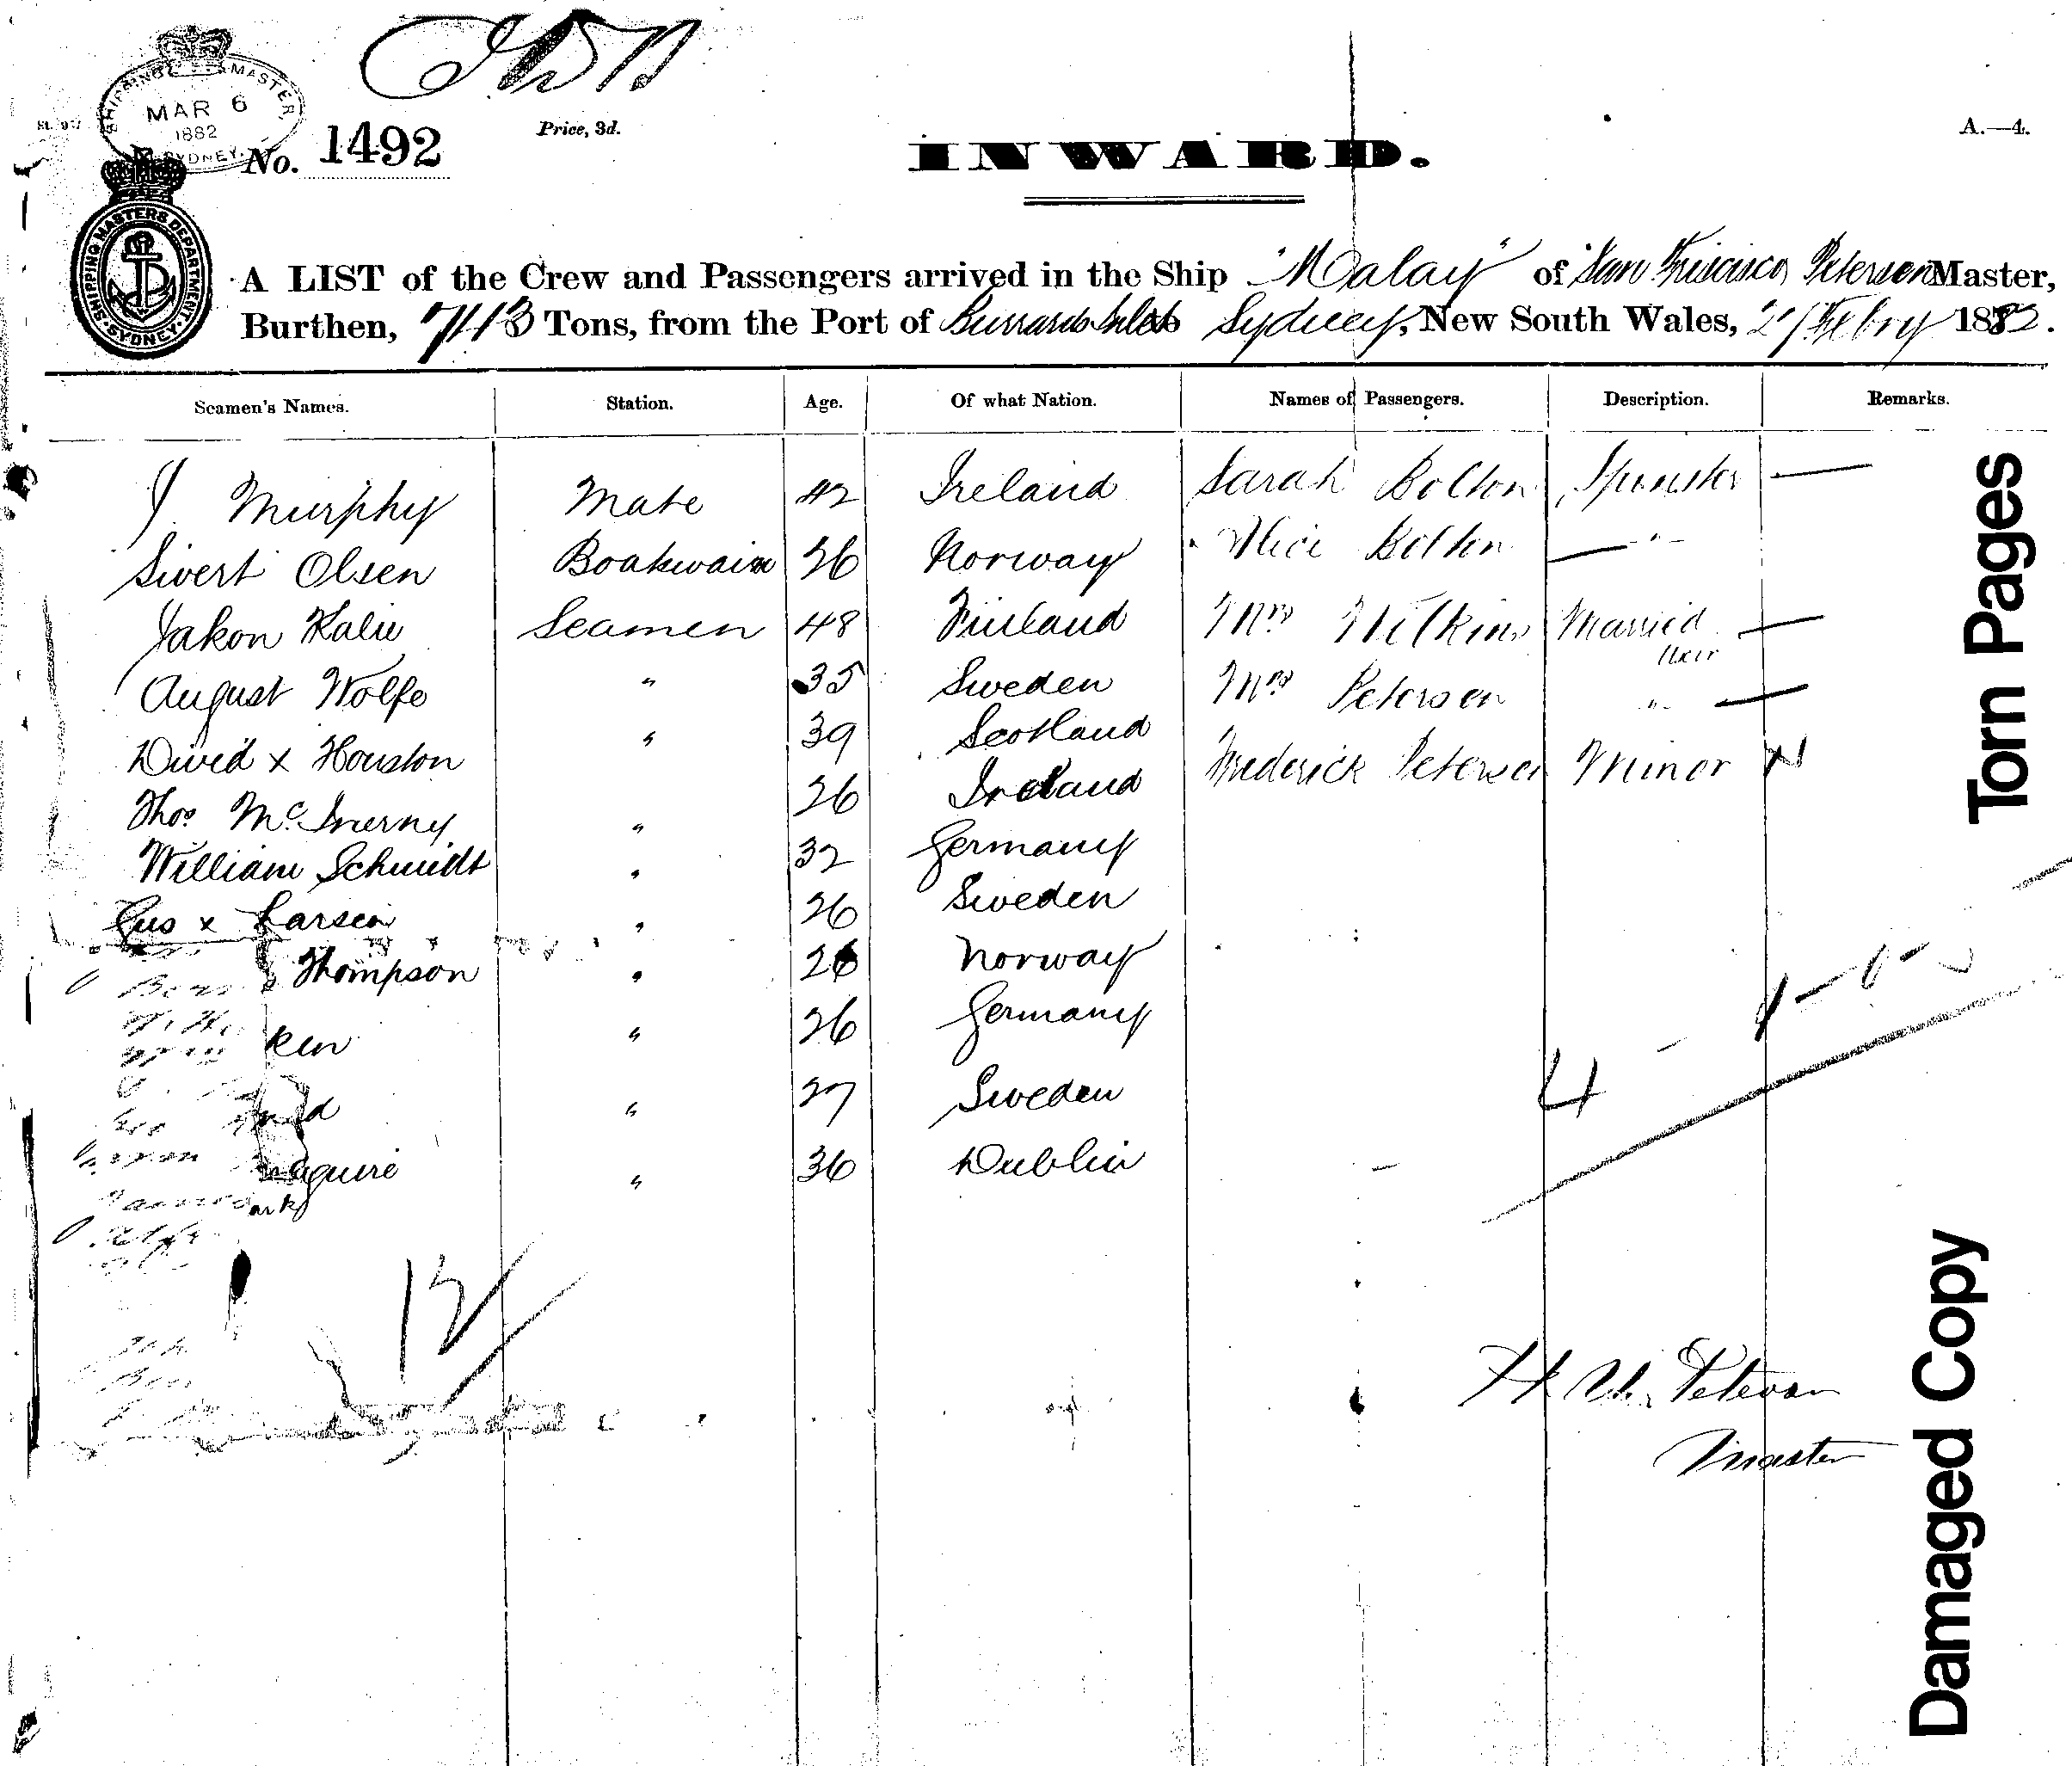 SHIPPING MASTER
MAR 6
1882
SYDNEY
No. 1492
Price, 3d.
A.—4.
INWARD.
SHIPPING MASTERS DEPARTMENT · SYDNEY
A LIST of the Crew and Passengers arrived in the Ship "Malay" of San Friscisco, Petersen Master,
Burthen, 743 Tons, from the Port of Burrards Inlet Sydney, New South Wales, Febry 1882.
Seamen's Names. Station. Age. Of what Nation. Names of Passengers. Description. Remarks.
J Murphy Mate 42 Ireland Sarah Bolton Spinster —
Sivert Olsen Boatswain 26 Norway Alice Bolton — " —
Jakon Kalie Seamen 48 Finland Mrs Wilkins Married —
August Wolfe " 35 Sweden Mrs Petersen " —
David x Houston " 39 Scotland Frederick Petersen Minor
Thos McInerny " 26 Ireland
William Schmidt " 32 Germany
Gus x Larsen " 26 Sweden
Thompson " 26 Norway
ken " 26 Germany
d " 27 Sweden
aguire " 36 Dublin
12
4
Petersen
Master
Torn Pages
Damaged Copy